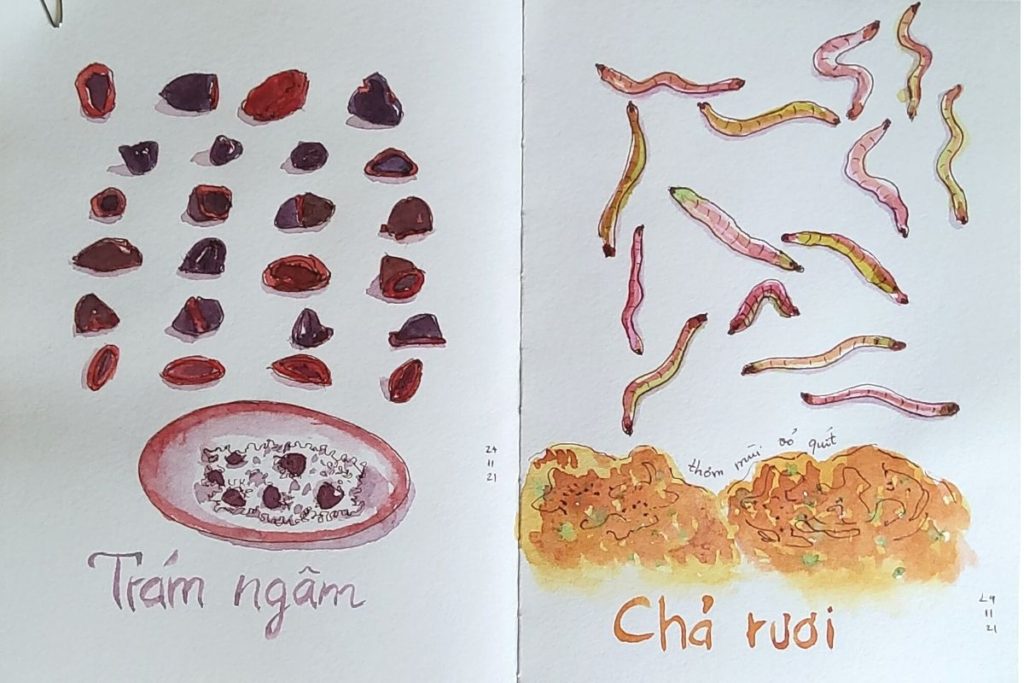 24
11
21
Trám ngâm
thơm mùi vỏ quít
Chả rươi
29
11
21